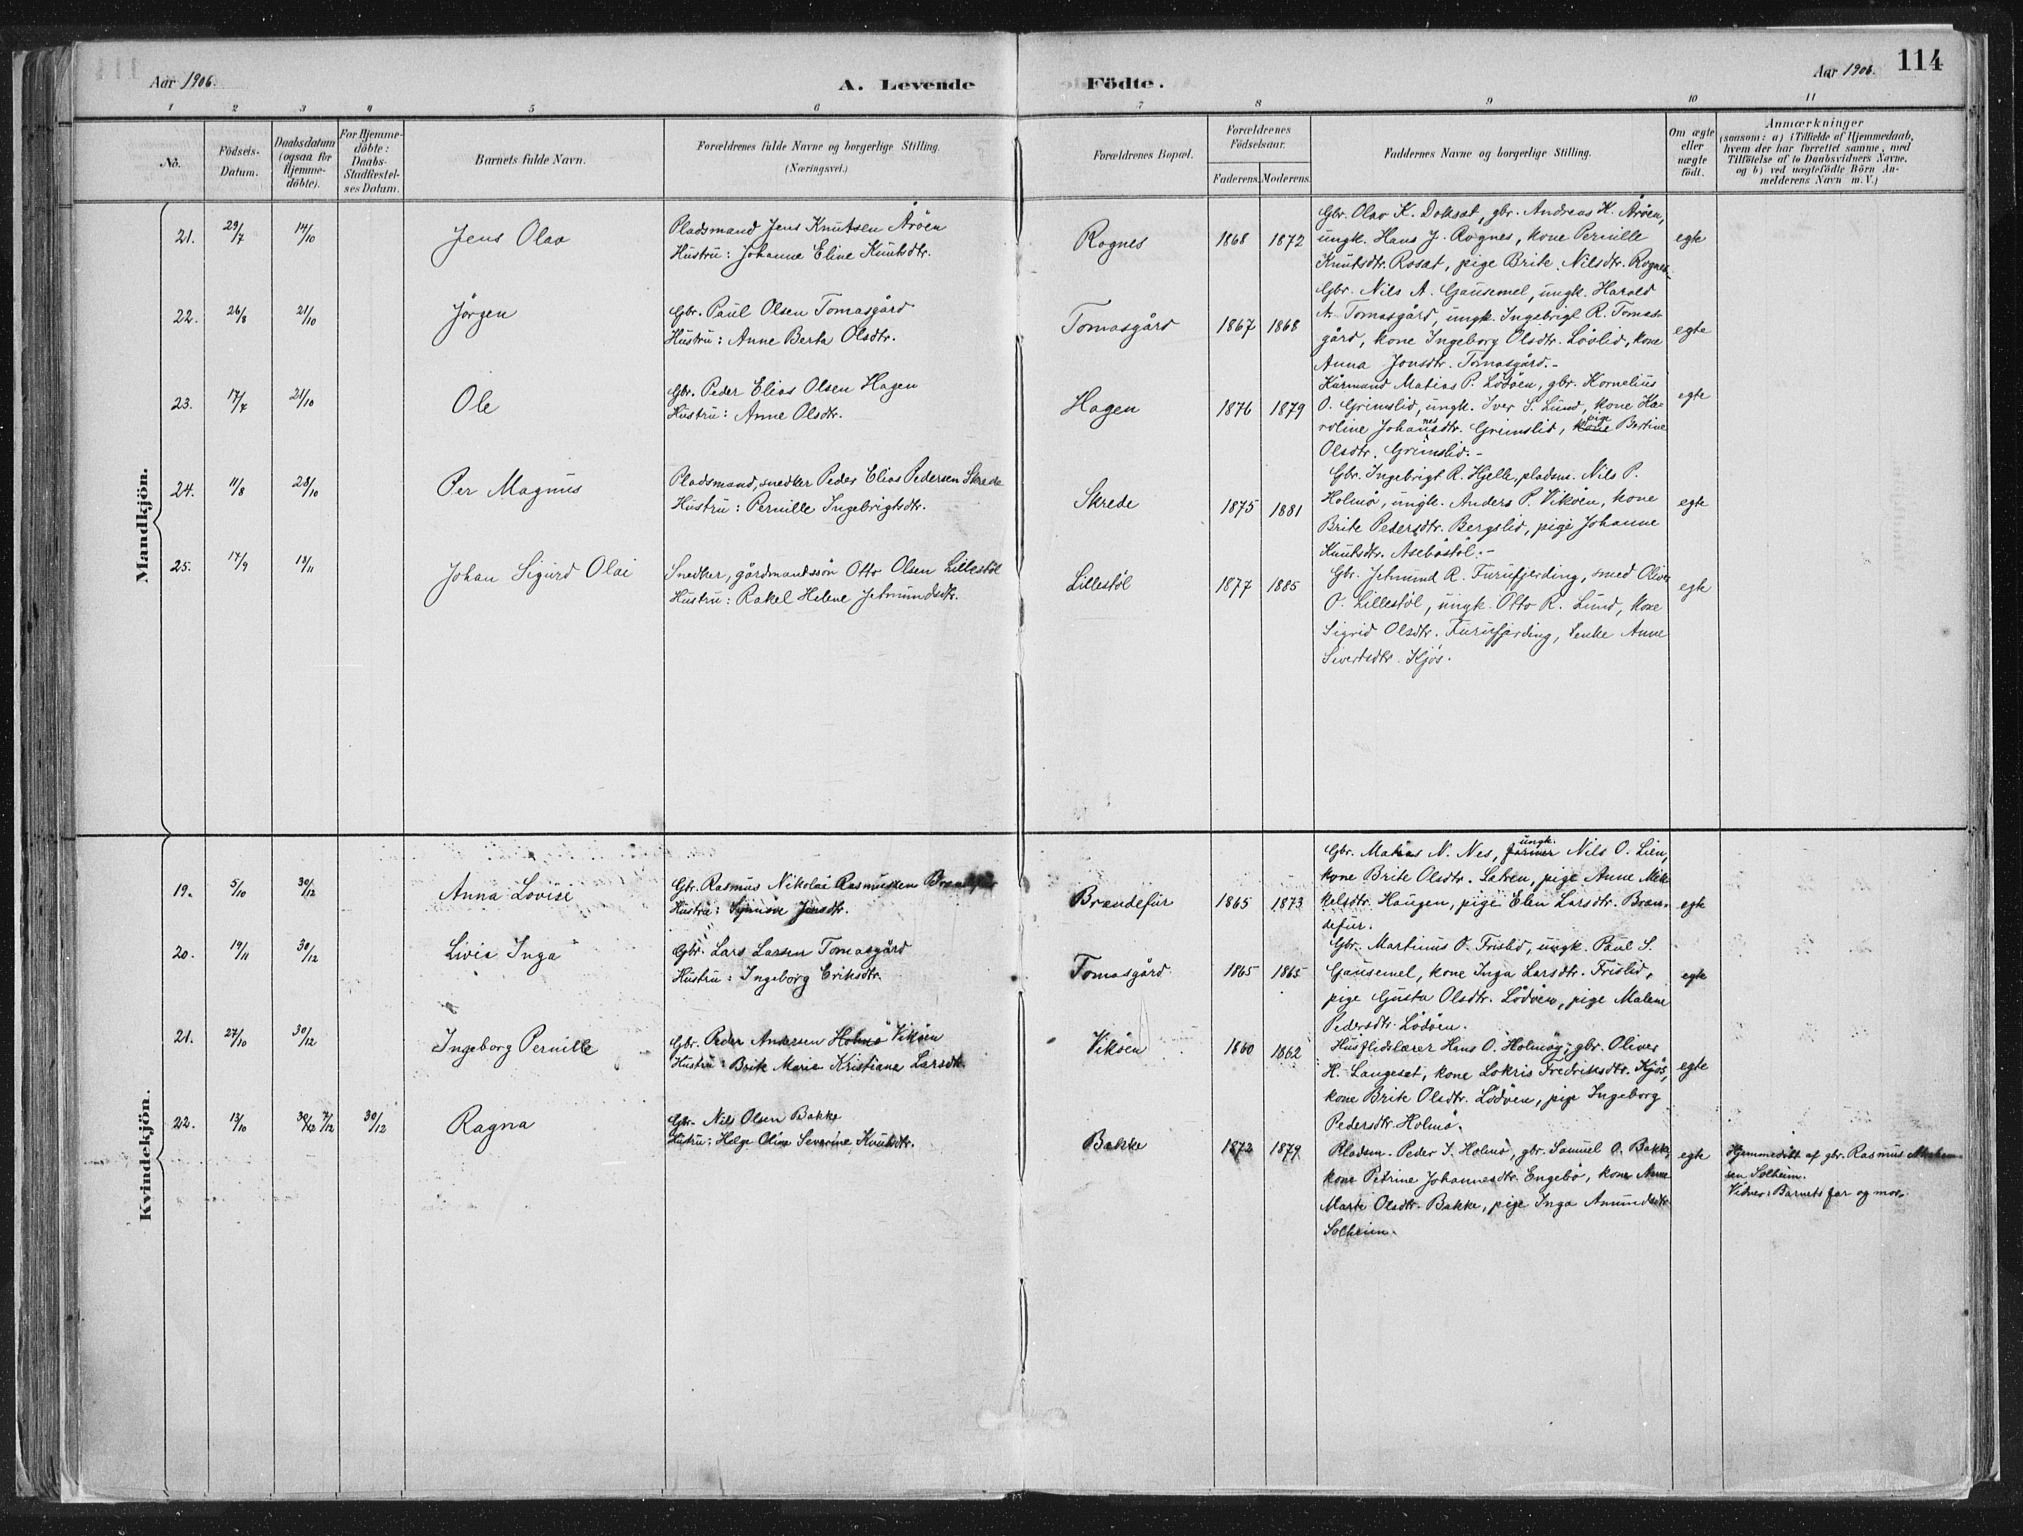 Aar 1906.
A. Levende
Födte.
Aar 1906.
114
1 2 3 4 5 6 7 8 9 10 11
No.
Födsels-
Datum.
Daabsdatum
(ogsaa for
Hjemme-
döbte).
For Hjemme-
döbte:
Daabs-
Stadfæstel-
ses Datum.
Barnets fulde Navn.
Forældrenes fulde Navne og borgerlige Stilling.
(Næringsvei.)
Forældrenes Bopæl.
Forældrenes
Födselsaar.
Faderens. Moderens.
Faddernes Navne og borgerlige Stilling.
Om ægte
eller
uægte
födt.
Anmærkninger
(saasom: a) i Tilfælde af Hjemmedaab,
hvem der har forrettet samme, med
Tilföielse af to Daabsvidners Navne.
og b) ved uægtefödte Börn An-
melderens Navn m. V.)
Mandkjön.
21. 29/7 14/10 Jens Olav
Pladsmand Jens Knutsen Åröen
Hustru: Johanne Eline Knutsdtr.
Rognes 1868 1872
Gbr. Olav K. Doksæt, gbr. Andreas K. Aröen,
ungk. Hans J. Rognes, kone Pernille
Knutsdtr. Rosæt, pige Brite Nilsdtr. Rognes.
egte
22. 26/8 21/10 Jörgen
Gbr. Paul Olsen Tomasgård
Hustru: Anne Berta Olsdtr.
Tomasgård 1867 1868
Gbr. Nils A. Gausemel, ungk. Harald
A. Tomasgård, ungk. Ingebrigt R. Tomas-
gård, kone Ingeborg Olsdtr. Lövlid, kone
Anna Jonsdtr. Tomasgård.-
egte
23. 17/7 21/10 Ole
Gbr. Peder Elias Olsen Hagen
Hustru: Anne Olsdtr.
Hagen 1876 1879
Kårmand Matias P. Lödöen, gbr. Kornelius
O. Grimslid, ungk. Iver S. Lund, kone Ka-
roline Johannesdtr. Grimslid, kone pige Bertine
Olsdtr. Grimslid.-
egte
24. 11/8 28/10 Per Magnus
Pladsmand, snedker Peder Elias Pedersen Skrede
Hustru: Pernille Ingebrigtsdtr.
Skrede 1875 1881
Gbr. Ingebrigt R. Hjelle, pladsm. Nils P.
Holmö, ungk. Anders P. Viköen, kone
Brite Pedersdtr. Bergslid, pige Johanne
Knutsdtr. Aseböstöl.-
egte
25. 17/9 18/11 Johan Sigurd Olai
Snedker, gårdmandssön Otto Olsen Lillestöl
Hustru: Rakel Helene Jetmundsdtr.
Lillestöl 1877 1885
Gbr. Jetmund R. Furufjerding, smed Oliver
O. Lillestöl, ungk. Otto R. Lund, kone
Sigrid Olsdtr. Furufjerding, enke Anne
Sivertsdtr. Kjös.
egte
Kvindekjön.
19. 5/10 30/12 Anna Lovise
Gbr. Rasmus Nikolai Rasmussen Brandefur
Hustru: Synnöve Jonsdtr.
Brandefur 1865 1873
Gbr. Matias N. Nes, farmer ungk. Nils O. Lien,
kone Brite Olsdtr. Sætren, pige Anne Mik-
kelsdtr. Haugen, pige Elen Larsdtr. Bran-
defur.
egte
20. 19/11 30/12 Livia Inga
Gbr. Lars Larsen Tomasgård
Hustru: Ingeborg Eriksdtr.
Tomasgård 1865 1865
Gbr. Martinus O. Frislid, ungk. Paul S.
Gausemel, kone Inga Larsdtr. Frislid,
pige Gusta Olsdtr. Lödöen, pige Malene
Pedersdtr. Lödöen.
egte
21. 27/10 30/12 Ingeborg Pernille
Gbr. Peder Andersen Holmö Viköen
Hustru: Brite Marie Kristiane Larsdtr.
Viköen 1860 1862
Husflidslærer Hans O. Holmöy, gbr. Oliver
H. Langeset, kone Lokris Fredriksdtr. Kjös,
kone Brite Olsdtr. Lödöen, pige Ingeborg
Pedersdtr. Holmö.
egte
22. 13/10 30/12 7/12 30/12 Ragna
Gbr. Nils Olsen Bakke
Hustru: Helge Oline Severine Knutsdtr.
Bakke 1872 1879
Pladsm. Peder I. Holmö, gbr. Samuel O. Bakke,
kone Petrine Johannesdtr. Engebö, kone Anne
Marte Olsdtr. Bakke, pige Inga Amundsdtr.
Solheim.
egte
Hjemmedöbt af gbr. Rasmus
sen Solheim.
Vidner: Barnets far og mor.